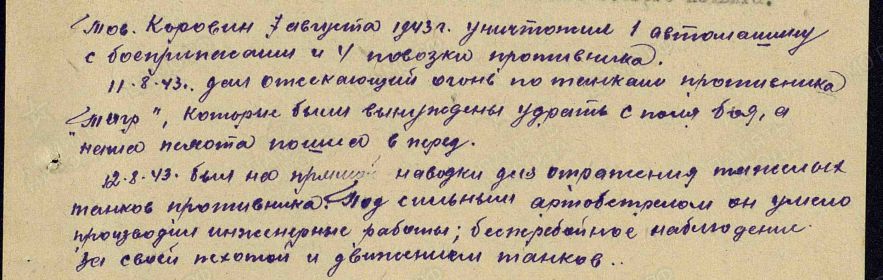 Тов. Коровин 7 августа 1943г. уничтожил 1 автомашину
с боеприпасами и 4 повозки противника.
11.8.43.. дал отсекающий огонь по танкам противника
"Тигр", которые были вынуждены удрать с поля боя, а
наша пехота пошла в перед.
12.8.43. был на прямой наводки для отражения тяжелых
танков противника. Под сильным артобстрелом он умело
производил инженерные работы; бесперебойное наблюдение
за своей пехотой и движением танков..